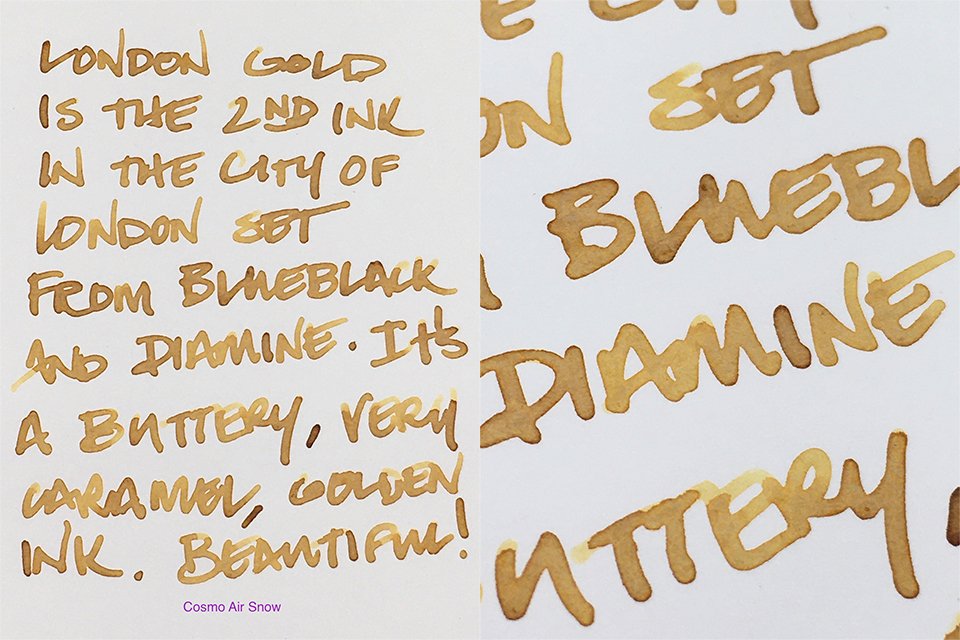 LONDON GOLD
IS THE 2ND INK
IN THE CITY OF
LONDON SET
FROM BLUEBLACK
AND DIAMINE. IT'S
A BUTTERY, VERY
CARAMEL, GOLDEN
INK. BEAUTIFUL!
Cosmo Air Snow
SET
BLUEBL
DIAMINE
UTTERY